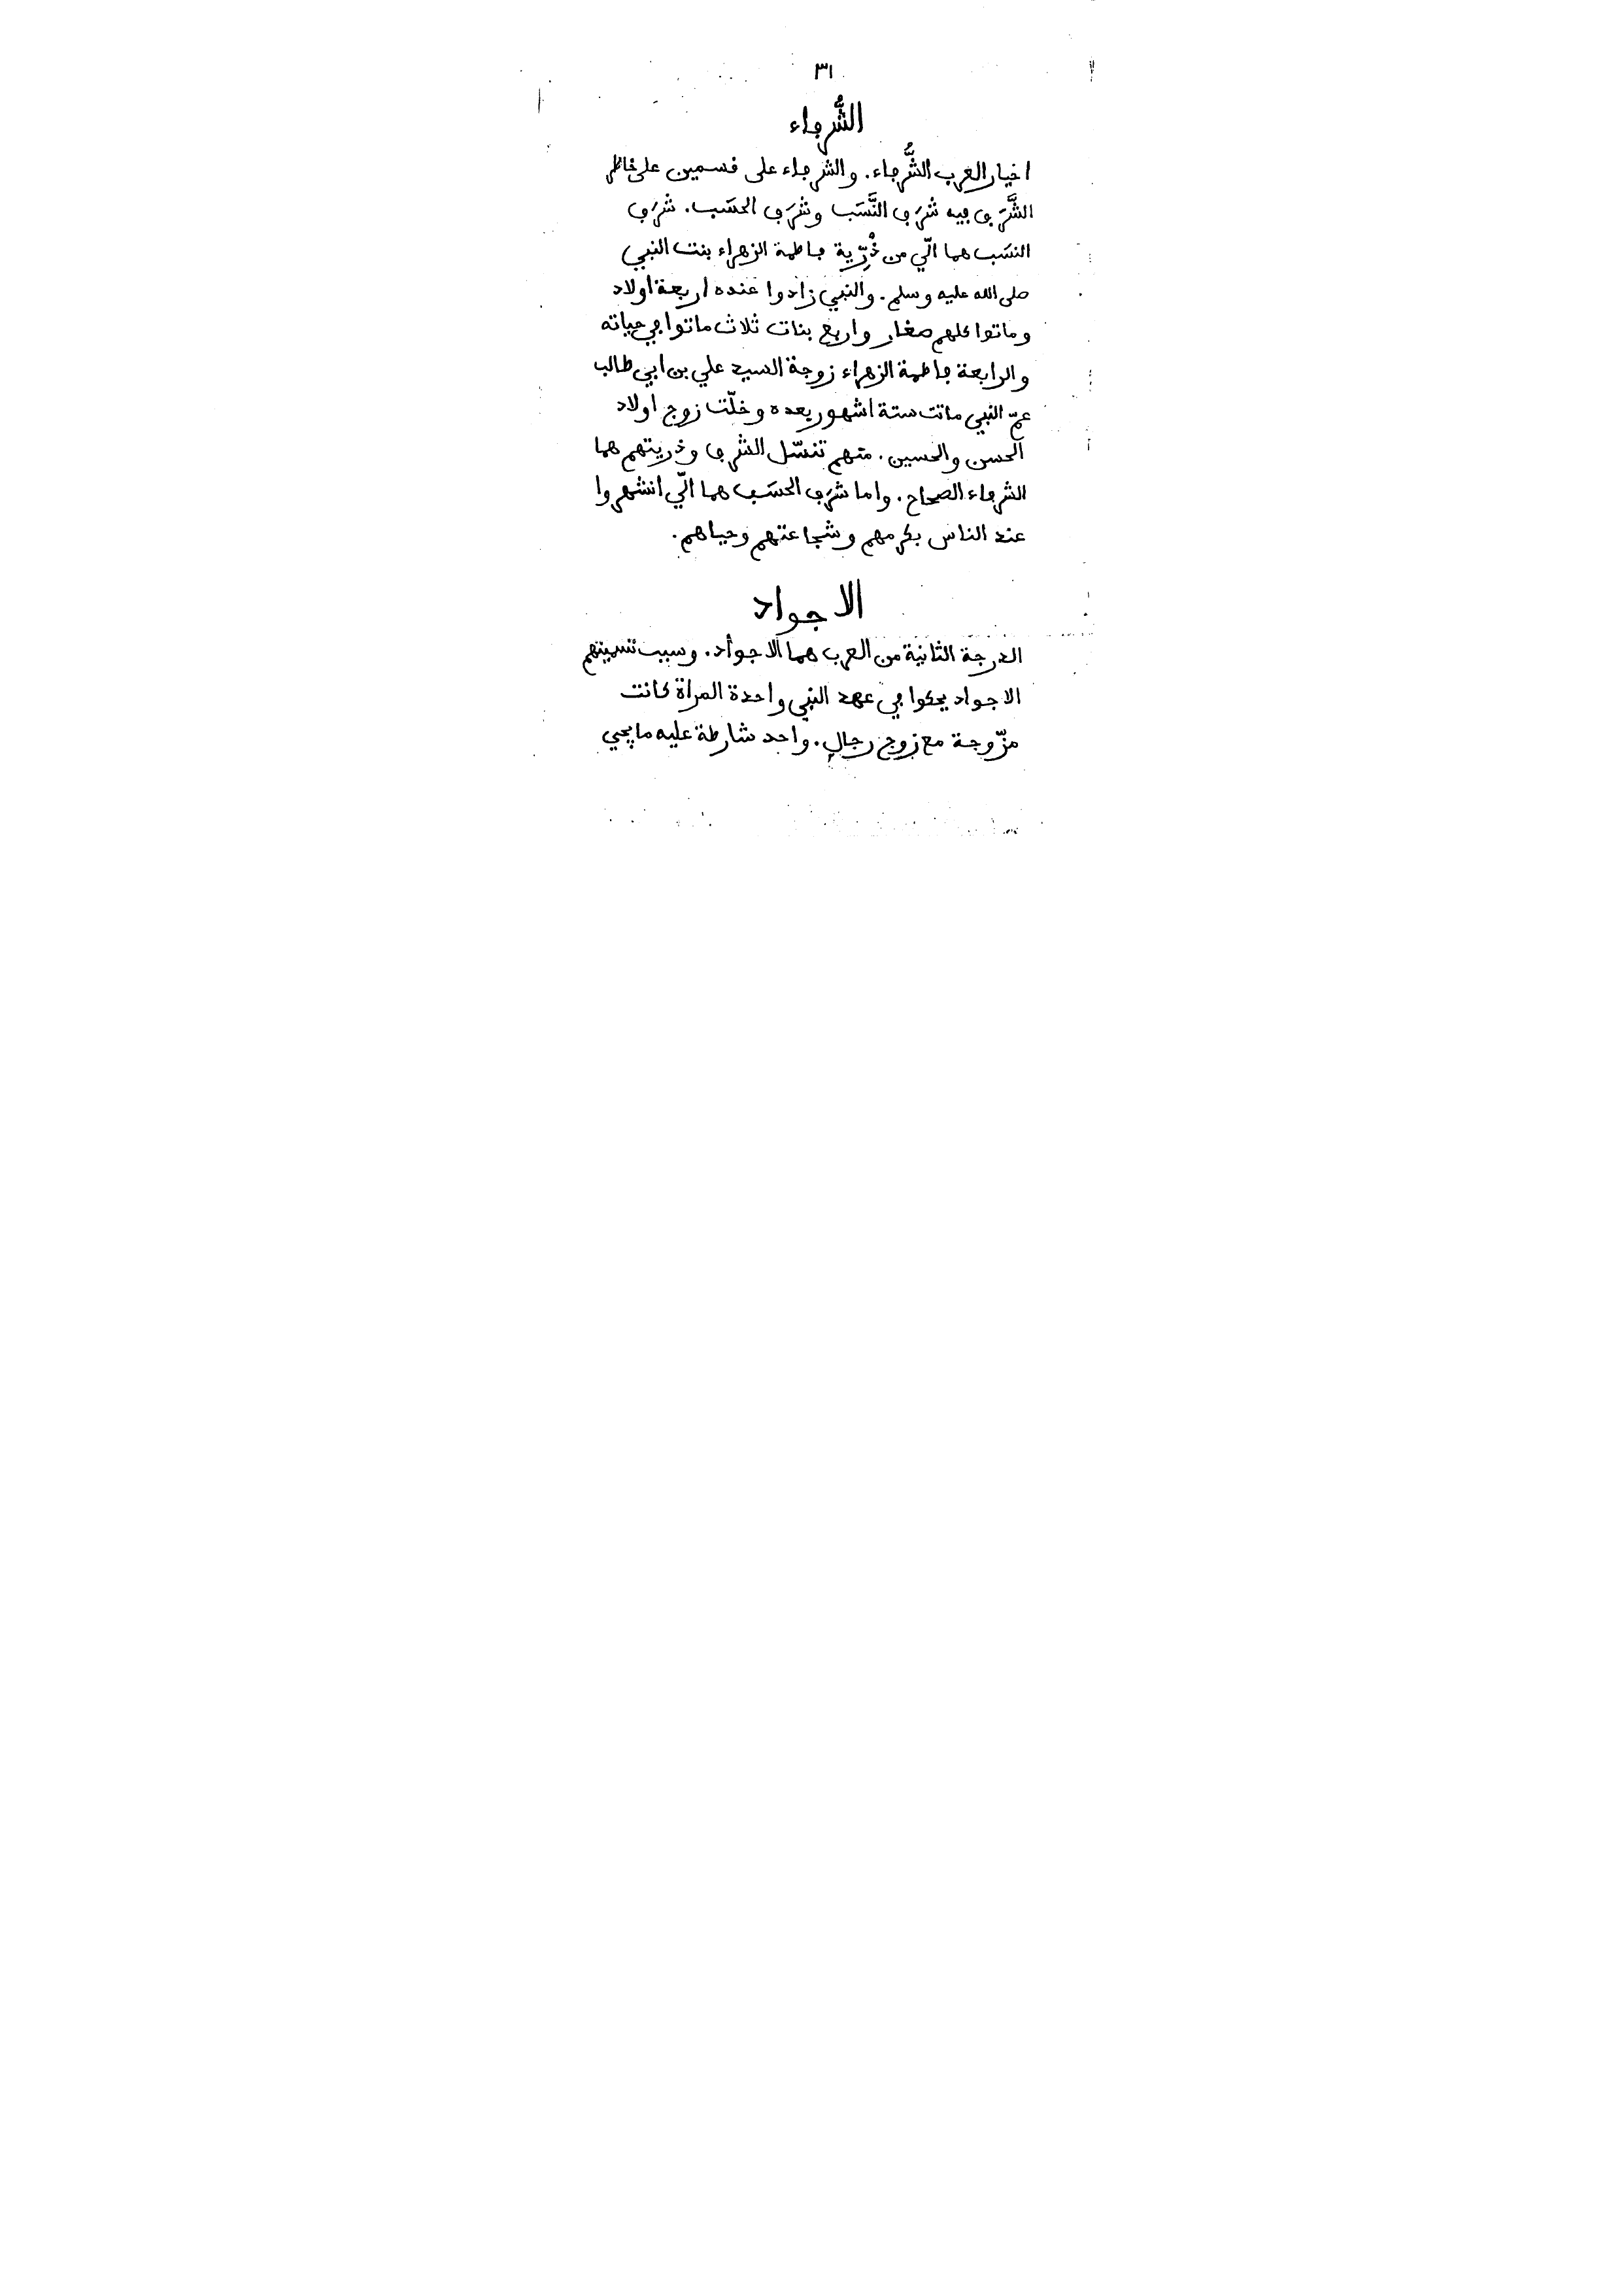 ٣١
الشُّرڢاء
اخيار العرب الشُّرڢاء. والشرڢاء على ڧسمين على خاطر
الشَّرَڢ ڢيه شرَڢ النَّسَب وشرَڢ الحسَب. شرَڢ
النسَب هما الّي من ذُرِّية ڢاطمة الزهراء بنت النبي
صلى الله عليه وسلم. والنبي زادوا عنده اربعة اولاد
وماتوا كلهم صغار واربع بنات ثلاث ماتوا ڢي حياته
والرابعة ڢاطمة الزهراء زوجة السيد علي بن ابي طالب
عمّ النبي ماتت ستة اشهور بعده وخلّت زوج اولاد
الحسن والحسين. منهم تنسّل الشرڢا وذريتهم هما
الشرڢاء الصحاح. واما شرَڢ الحسَب هما الّي انشهروا
عند الناس بكرمهم وشجاعتهم وحياهم.
الاجواد
الدرجة الثانية من العرب هما الاجواد. وسبب تسميتهم
الاجواد يحكوا ڢي عهد النبي واحدة المراة كانت
مزّوجة مع زوج رجال. واحد شارطة عليه ما يجي